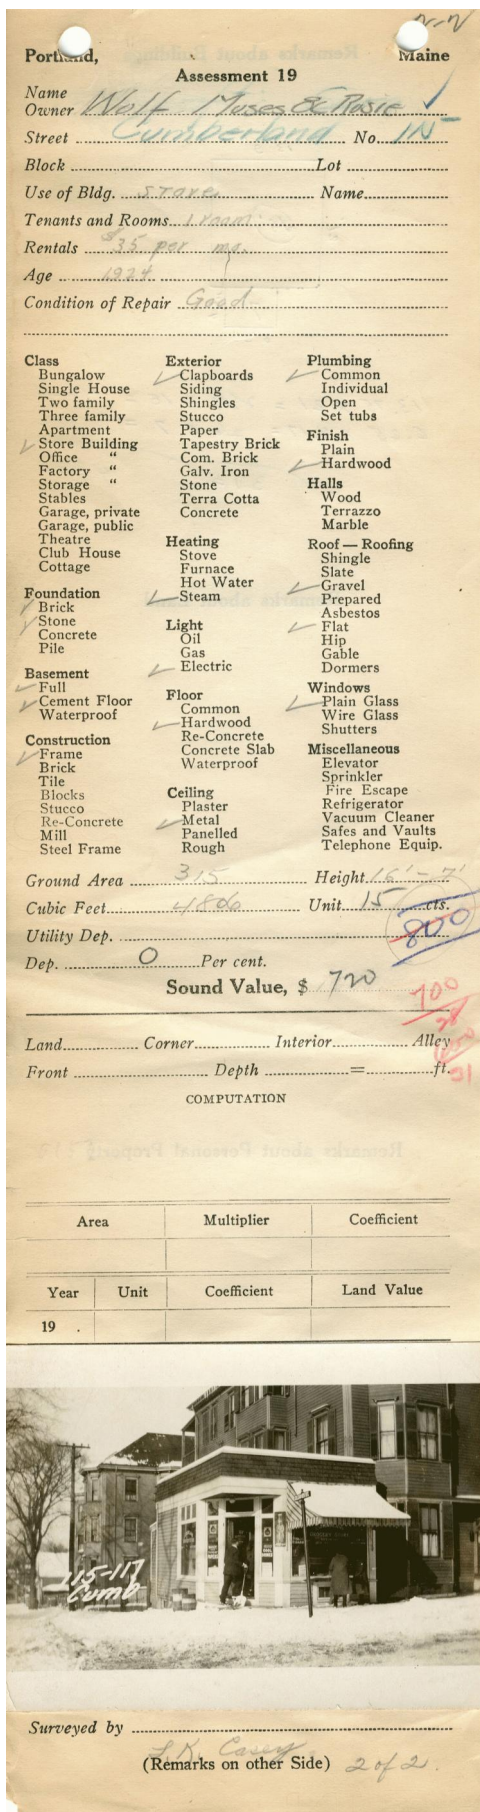 Portland, Maine
Assessment 19
Name
Owner Wolf Moses & Rosie
Street Cumberland No. 115
Block Lot
Use of Bldg. Store Name
Tenants and Rooms 1 room
Rentals $35 per mo.
Age 1924
Condition of Repair Good
Class
Bungalow
Single House
Two family
Three family
Apartment
Store Building
Office "
Factory "
Storage "
Stables
Garage, private
Garage, public
Theatre
Club House
Cottage
Foundation
Brick
Stone
Concrete
Pile
Basement
Full
Cement Floor
Waterproof
Construction
Frame
Brick
Tile
Blocks
Stucco
Re-Concrete
Mill
Steel Frame
Exterior
Clapboards
Siding
Shingles
Stucco
Paper
Tapestry Brick
Com. Brick
Galv. Iron
Stone
Terra Cotta
Concrete
Heating
Stove
Furnace
Hot Water
Steam
Light
Oil
Gas
Electric
Floor
Common
Hardwood
Re-Concrete
Concrete Slab
Waterproof
Ceiling
Plaster
Metal
Panelled
Rough
Plumbing
Common
Individual
Open
Set tubs
Finish
Plain
Hardwood
Halls
Wood
Terrazzo
Marble
Roof — Roofing
Shingle
Slate
Gravel
Prepared
Asbestos
Flat
Hip
Gable
Dormers
Windows
Plain Glass
Wire Glass
Shutters
Miscellaneous
Elevator
Sprinkler
Fire Escape
Refrigerator
Vacuum Cleaner
Safes and Vaults
Telephone Equip.
Ground Area 315 Height
Cubic Feet Unit 15 cts.
800
Utility Dep.
Dep. 0 Per cent.
Sound Value, $ 720
700
Land Corner Interior Alley
Front Depth = ft.
COMPUTATION
Area Multiplier Coefficient
Year Unit Coefficient Land Value
19 .
115-117
Cumb
Surveyed by
L.K. Casey
(Remarks on other Side) 2 of 2.